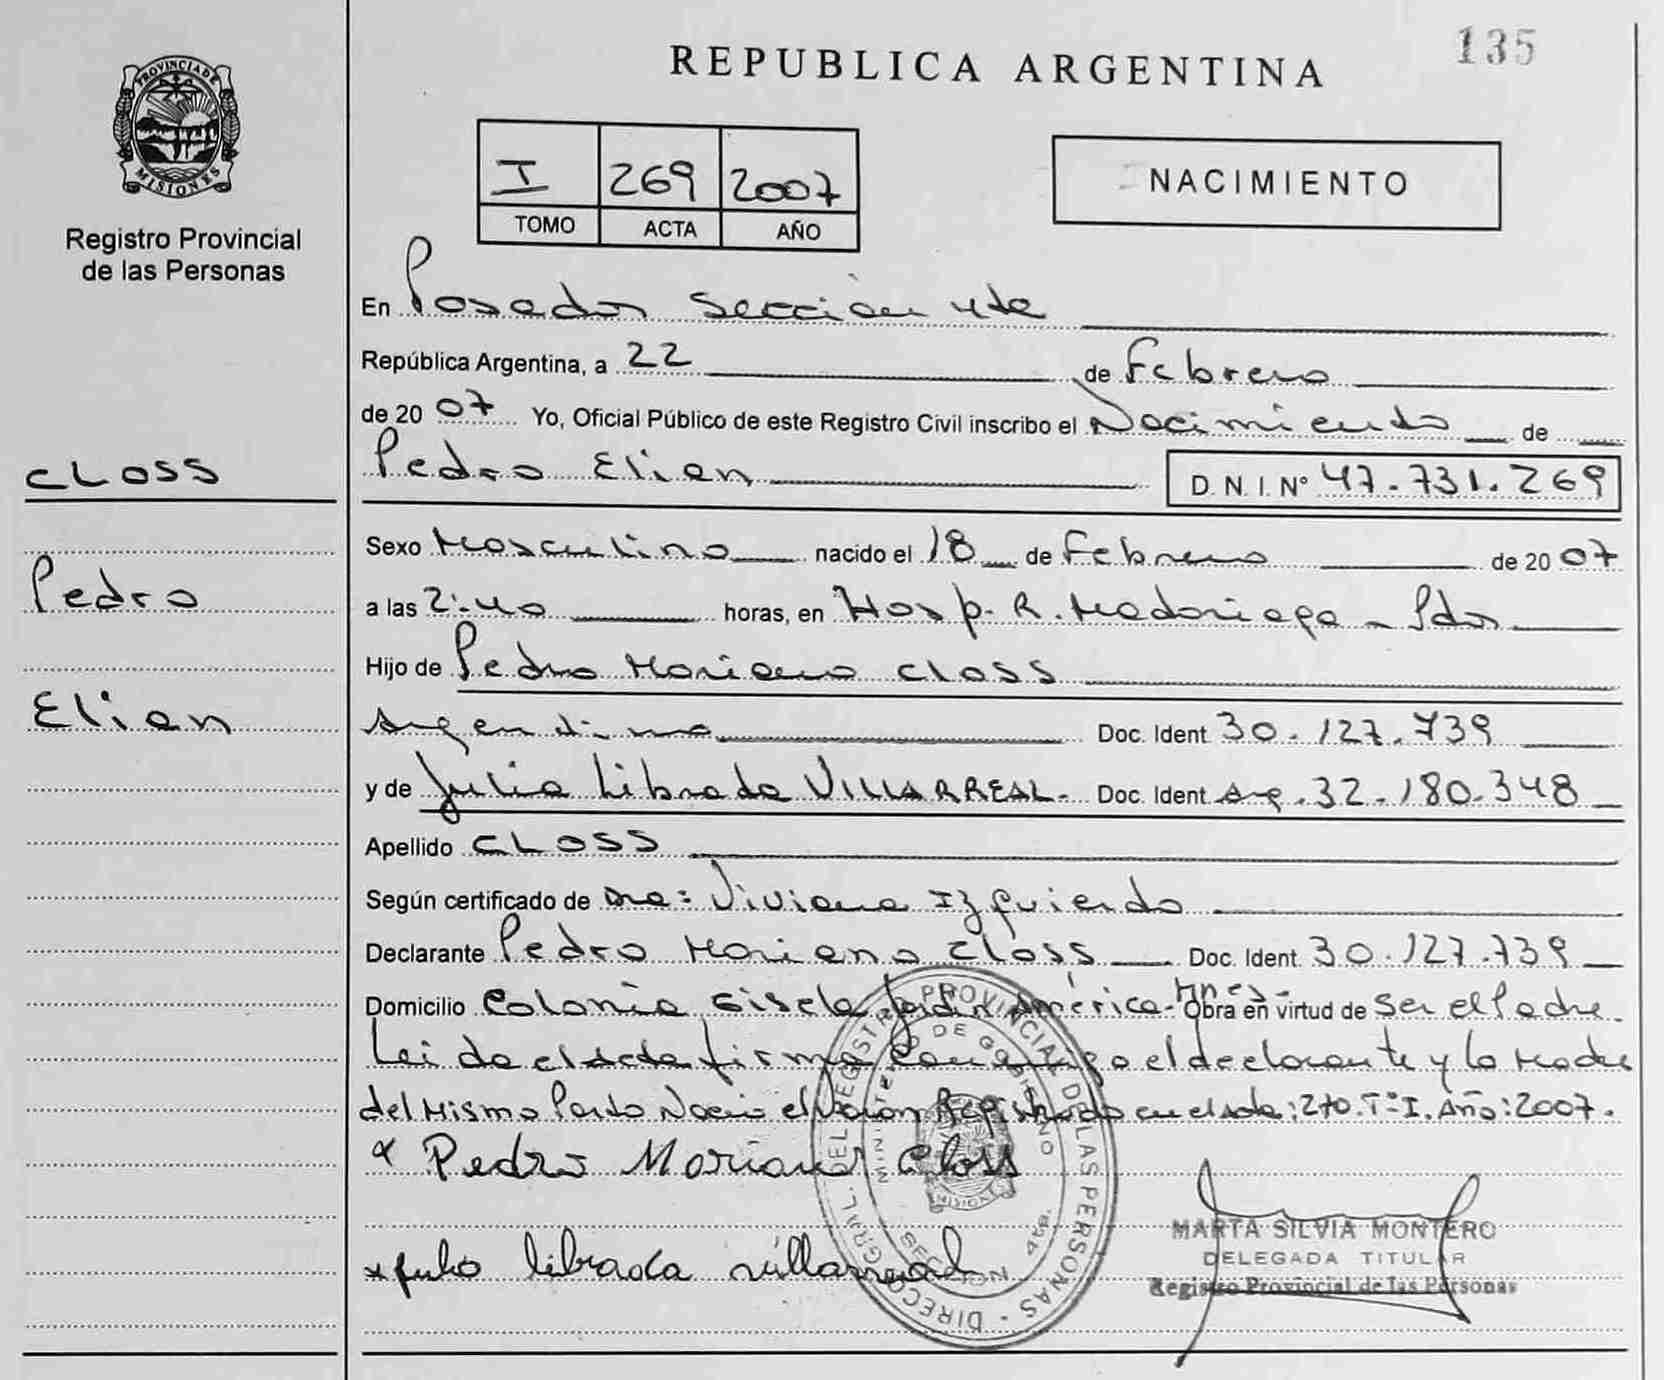 135
REPUBLICA ARGENTINA
PROVINCIA DE
MISIONES
Registro Provincial
de las Personas
I 269 2007
TOMO ACTA AÑO
NACIMIENTO
En Posadas Sección 4ta
República Argentina, a 22 de Febrero
de 20 07 Yo, Oficial Público de este Registro Civil inscribo el Nacimiento de
CLOSS
Pedro Elian D.N.I. N° 47.731.269
Sexo Masculino nacido el 18 de Febrero de 20 07
Pedro
a las 2:40 horas, en Hosp. R. Madariaga - Pdas
Hijo de Pedro Mariano CLOSS
Elian
Argentino Doc. Ident 30.127.739
y de Julia Librada VILLARREAL - Doc. Ident Arg. 32.180.348
Apellido CLOSS
Según certificado de Dra: Viviana Izquierdo
Declarante Pedro Mariano Closs Doc. Ident. 30.127.739
Domicilio Colonia Gisela Jardín América - Mnes- Obra en virtud de Ser el Padre
Leída el Acta firma conmigo el declarante y la Madre
del Mismo Parto Nació el Varon Registrado en el Acta: 270. T°I. Año: 2007.
x Pedro Mariano Closs
x Julia librada villarreal
DIREC. GRAL. DEL REGISTRO PROVINCIAL DE LAS PERSONAS
MINISTERIO DE GOBIERNO
MISIONES
SECCION 4ta.
MARTA SILVIA MONTERO
DELEGADA TITULAR
Registro Provincial de las Personas